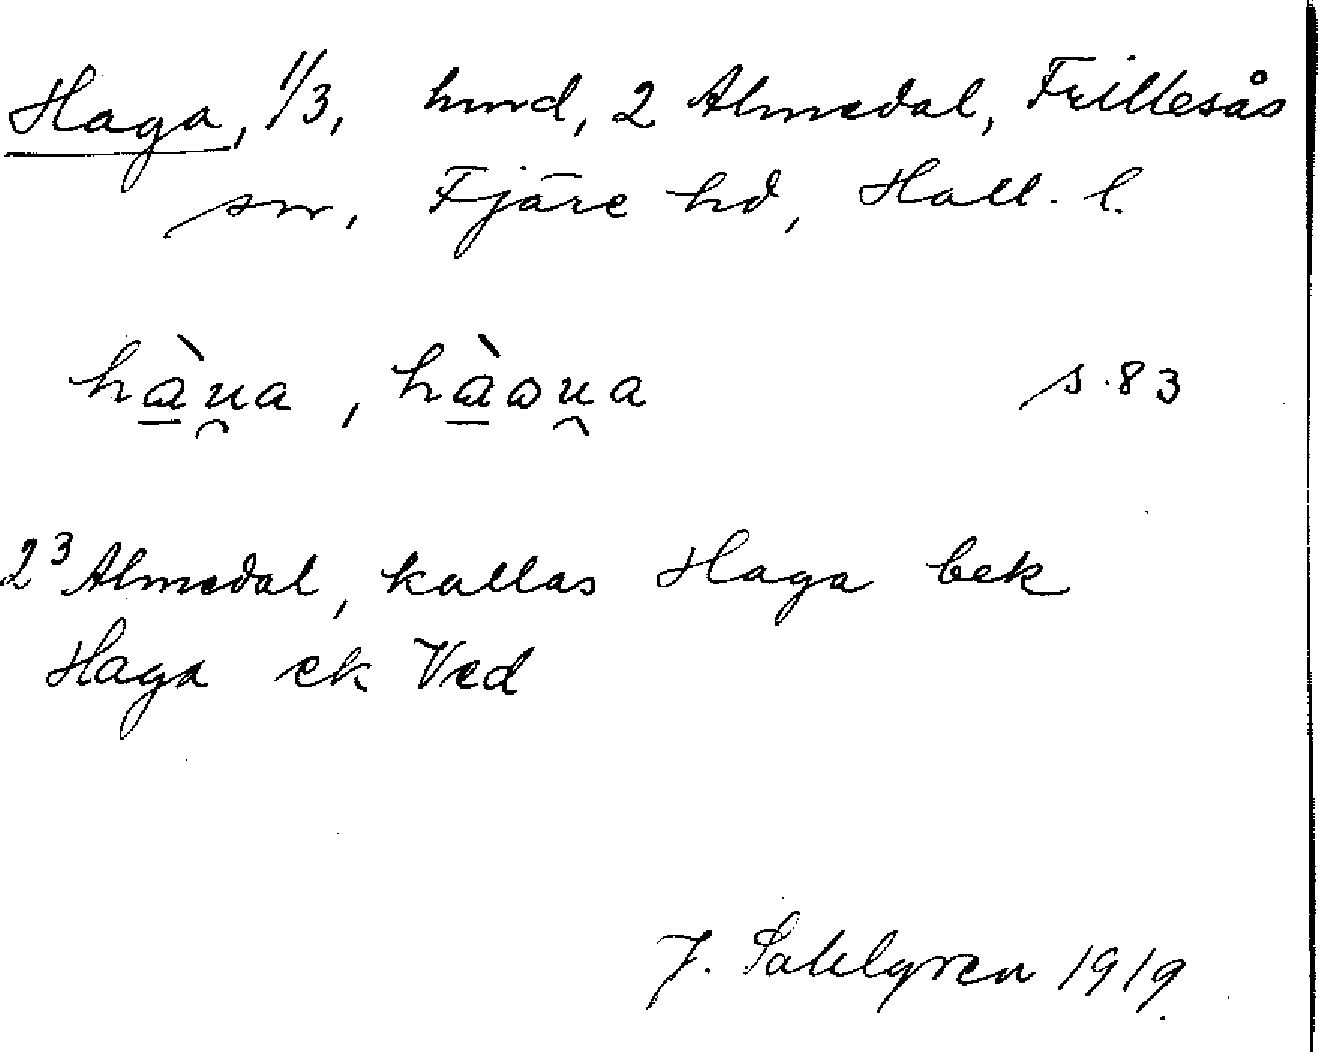 Haga, 1/3, hmd, 2 Almedal, Frillesås
sn, Fjäre hd, Hall. l.
hà̠u̯a, hà̠ωu̯a s. 83
2³ Almedal, kallas Haga bek
Haga ek Ved
J. Sahlgren 1919.